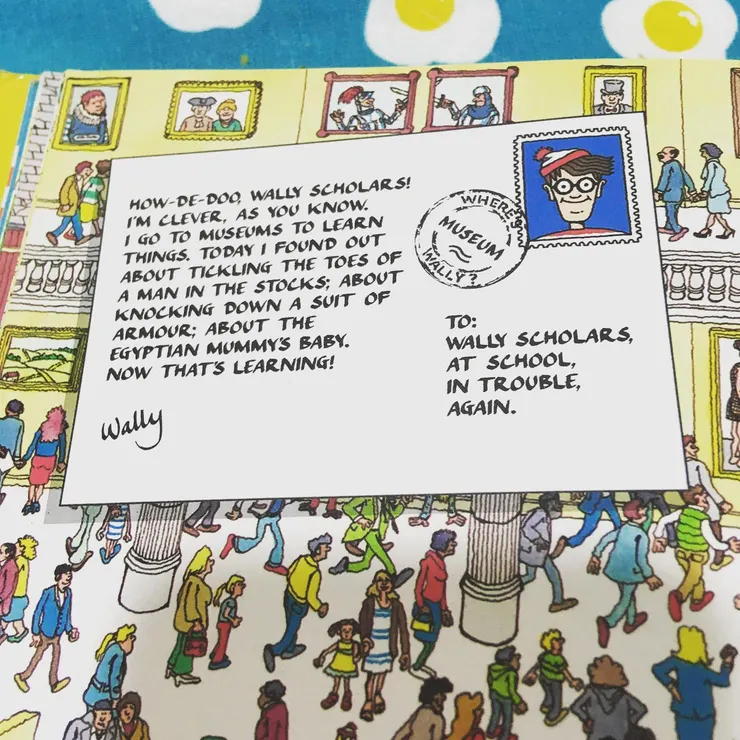 HOW-DE-DOO, WALLY SCHOLARS!
I'M CLEVER, AS YOU KNOW.
I GO TO MUSEUMS TO LEARN
THINGS. TODAY I FOUND OUT
ABOUT TICKLING THE TOES OF
A MAN IN THE STOCKS; ABOUT
KNOCKING DOWN A SUIT OF
ARMOUR; ABOUT THE
EGYPTIAN MUMMY'S BABY.
NOW THAT'S LEARNING!
Wally
WHERE'S
MUSEUM
WALLY?
TO:
WALLY SCHOLARS,
AT SCHOOL,
IN TROUBLE,
AGAIN.